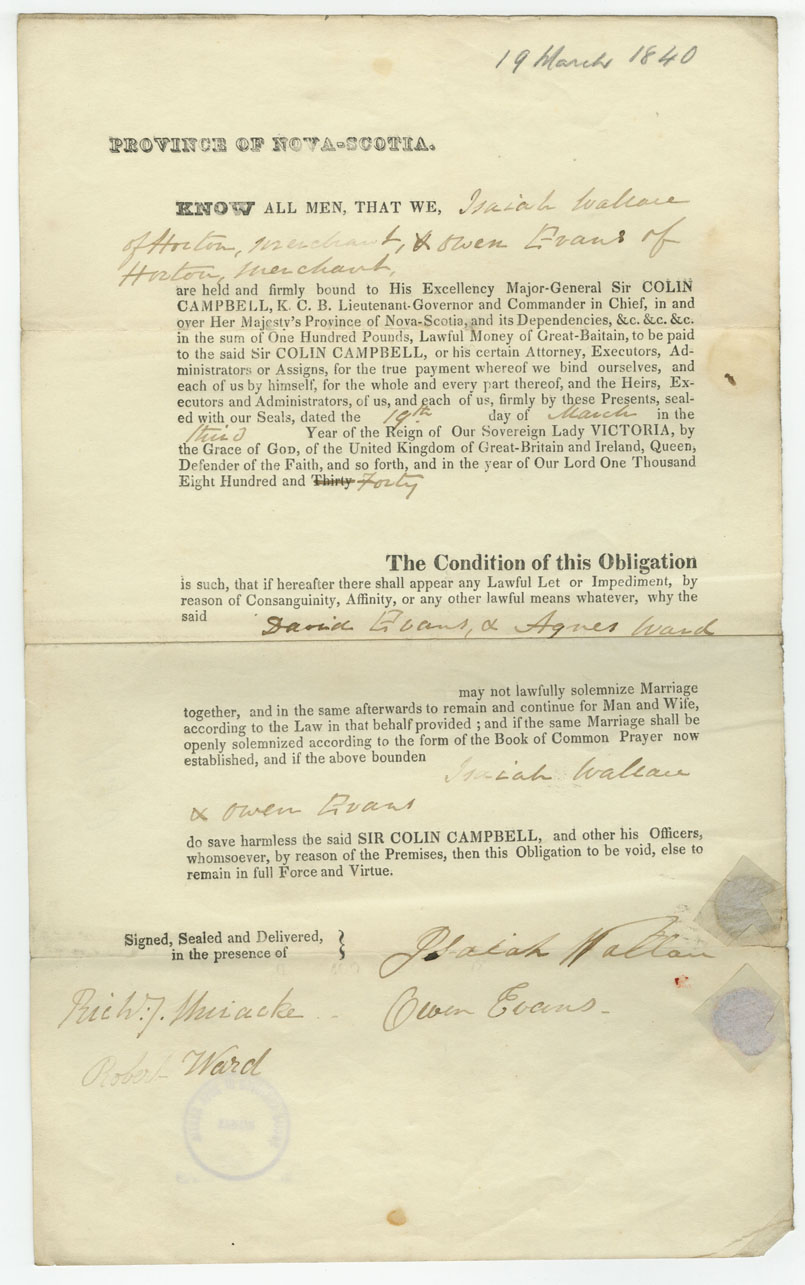 19 March 1840
PROVINCE OF NOVA-SCOTIA.
KNOW ALL MEN, THAT WE, Isaiah Wallace
of Horton, merchant, & Owen Evans of
Horton, merchant,
are held and firmly bound to His Excellency Major-General Sir COLIN
CAMPBELL, K. C. B. Lieutenant-Governor and Commander in Chief, in and
over Her Majesty's Province of Nova-Scotia, and its Dependencies, &c. &c. &c.
in the sum of One Hundred Pounds, Lawful Money of Great-Baitain, to be paid
to the said Sir COLIN CAMPBELL, or his certain Attorney, Executors, Ad-
ministrators or Assigns, for the true payment whereof we bind ourselves, and
each of us by himself, for the whole and every part thereof, and the Heirs, Ex-
ecutors and Administrators, of us, and each of us, firmly by these Presents, seal-
ed with our Seals, dated the 19th day of March in the
third Year of the Reign of Our Sovereign Lady VICTORIA, by
the Grace of GOD, of the United Kingdom of Great-Britain and Ireland, Queen,
Defender of the Faith, and so forth, and in the year of Our Lord One Thousand
Eight Hundred and Thirty Forty
The Condition of this Obligation
is such, that if hereafter there shall appear any Lawful Let or Impediment, by
reason of Consanguinity, Affinity, or any other lawful means whatever, why the
said David Evans, & Agnes Ward
may not lawfully solemnize Marriage
together, and in the same afterwards to remain and continue for Man and Wife,
according to the Law in that behalf provided ; and if the same Marriage shall be
openly solemnized according to the form of the Book of Common Prayer now
established, and if the above bounden Isaiah Wallace
& Owen Evans
do save harmless the said SIR COLIN CAMPBELL, and other his Officers,
whomsoever, by reason of the Premises, then this Obligation to be void, else to
remain in full Force and Virtue.
Signed, Sealed and Delivered,
in the presence of
Isaiah Wallace
Richd. J. Uniacke
Owen Evans
Robert Ward